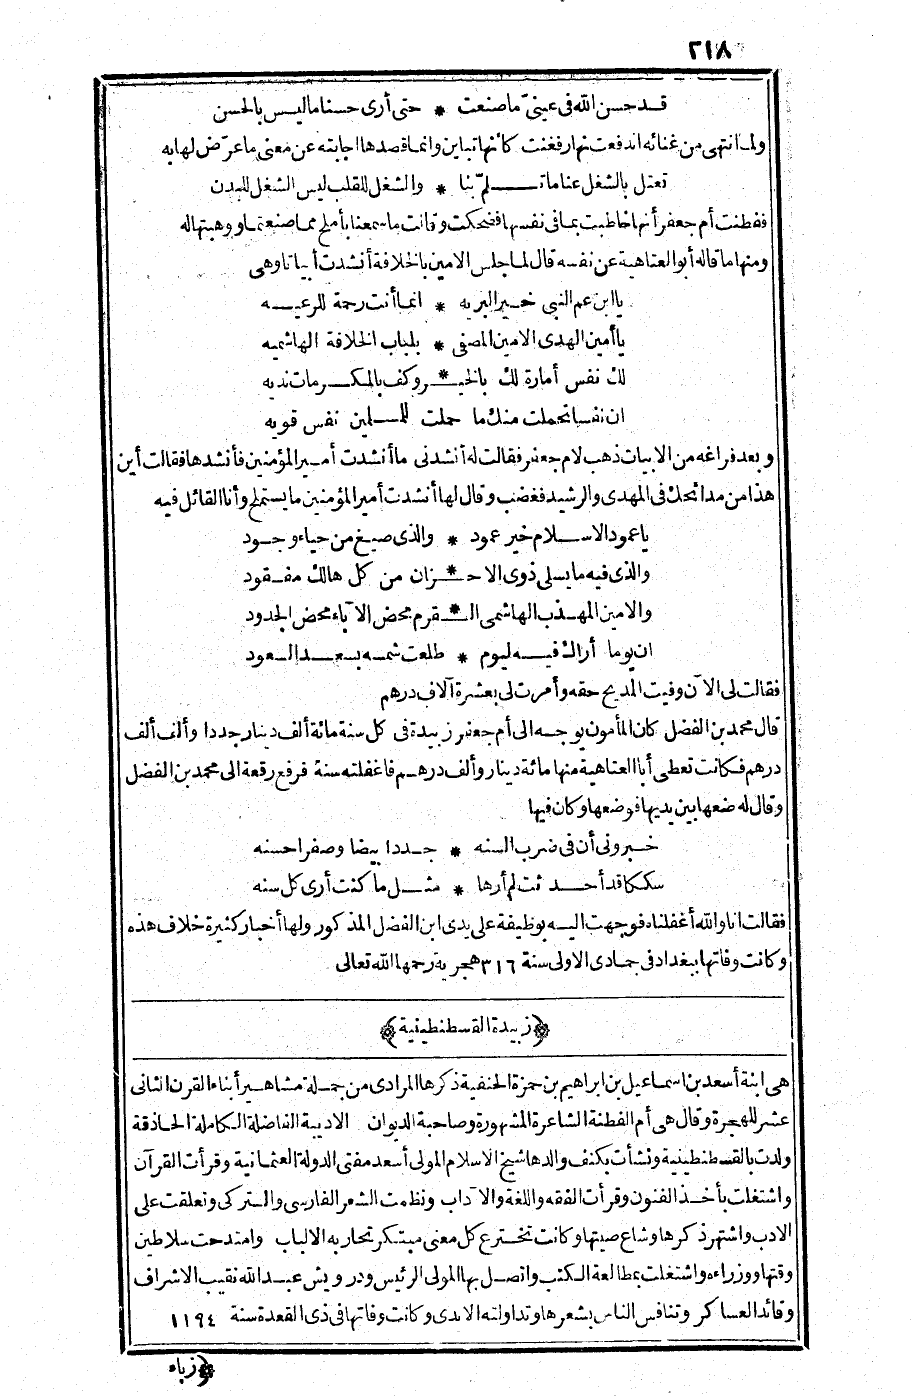 ٢١٨
قد حسن الله فى عينى ما صنعت * حتى أرى حسنا ما ليس بالحسن
ولما انتهى من غنائه اندفعت نهار فغنت كأنها تباين وانما قصدها اجابته عن معنى ما عرّض لها به
تعتل بالشغل عنا ما تلمّ بنا * والشغل للقلب ليس الشغل للبدن
ففطنت أم جعفر أنها خاطبت بما فى نفسها فضحكت وقالت ما سمعنا بأملح مما صنعتما ووهبتها له
ومنها ما قاله أبو العتاهية عن نفسه قال لما جلس الامين بالخلافة أنشدت أبياتا وهى
يا ابن عم النبى خير البريه * انما أنت رحمة للرعيه
يا أمين الهدى الامين المصفى * بلباب الخلافة الهاشميه
لك نفس أمارة لك بالخير * وكف بالمكرمات نديه
ان نفسا تحملت منك ما حملت للمسلمين نفس قويه
وبعد فراغه من الابيات ذهب لام جعفر فقالت له أنشدنى ما أنشدت أمير المؤمنين فأنشدها فقالت أين
هذا من مدائحك فى المهدى والرشيد فغضب وقال لها أنشدت أمير المؤمنين ما يستملح وأنا القائل فيه
يا عمود الاسلام خير عمود * والذى صيغ من حياء وجود
والذى فيه ما يسلى ذوى الاحزان * من كل هالك مفقود
والامين المهذب الهاشمى القرم * محض الآباء محض الجدود
ان يوما أراك فيه ليوم * طلعت شمسه بسعد السعود
فقالت لى الآن وفيت المديح حقه وأمرت لى بعشرة آلاف درهم
قال محمد بن الفضل كان المأمون يوجه الى أم جعفر زبيدة فى كل سنة مائة ألف دينار جددا وألف ألف
درهم فكانت تعطى أبا العتاهية منها مائة دينار وألف درهم فاغفلته سنة فرفع رقعة الى محمد بن الفضل
وقال له ضعها بين يديها فوضعها وكان فيها
خبرونى أن فى ضرب السنه * جددا بيضا وصفرا حسنه
سككا قد أحدثت لم أرها * مثل ما كنت أرى كل سنه
فقالت انا والله أغفلناه فوجهت اليه بوظيفة على يدى ابن الفضل المذكور ولها أخبار كثيرة خلاف هذه
وكانت وفاتها ببغداد فى جمادى الاولى سنة ٣١٦ هجرية رحمها الله تعالى
﴿زبيدة القسطنطينية﴾
هى ابنة أسعد بن اسماعيل بن ابراهيم بن حمزة الحنفية ذكرها المرادى من جملة مشاهير أبناء القرن الثانى
عشر للهجرة وقال هى أم الفطنة الشاعرة المشهورة وصاحبة الديوان الاديبة الفاضلة الكاملة الحاذقة
ولدت بالقسطنطينية ونشأت بكنف والدها شيخ الاسلام المولى أسعد مفتى الدولة العثمانية وقرأت القرآن
واشتغلت بأخذ الفنون وقرأت الفقه واللغة والآداب ونظمت الشعر الفارسى والتركى وتعلقت على
الادب واشتهر ذكرها وشاع صيتها وكانت تخترع كل معنى مبتكر تحار به الالباب وامتدحت سلاطين
وقتها ووزراءه واشتغلت بمطالعة الكتب واتصل بها المولى الرئيس ودرويش عبد الله نقيب الاشراف
وقائد العساكر وتنافس الناس بشعرها وتداولته الايدى وكانت وفاتها فى ذى القعدة سنة ١١٩٤
﴿زباء